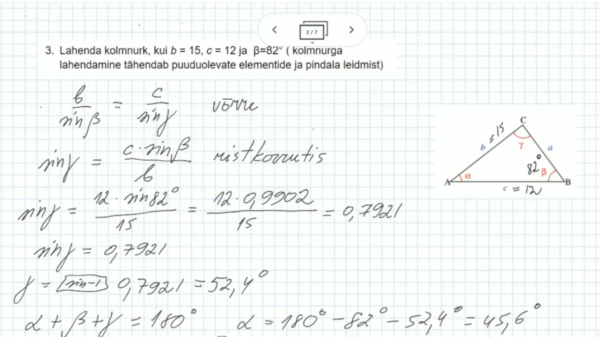 3 / 7
3. Lahenda kolmnurk, kui b = 15, c = 12 ja β=82° ( kolmnurga
lahendamine tähendab puuduolevate elementide ja pindala leidmist)
b/sin β = c/sin γ võrre
sin γ = c · sin β / b ristkorrutis
sin γ = 12 · sin 82° / 15 = 12 · 0,9902 / 15 = 0,7921
sin γ = 0,7921
γ = sin-1 0,7921 = 52,4°
α + β + γ = 180° α = 180° - 82° - 52,4° = 45,6°
C
b = 15 γ a
82°
A α β B
c = 12